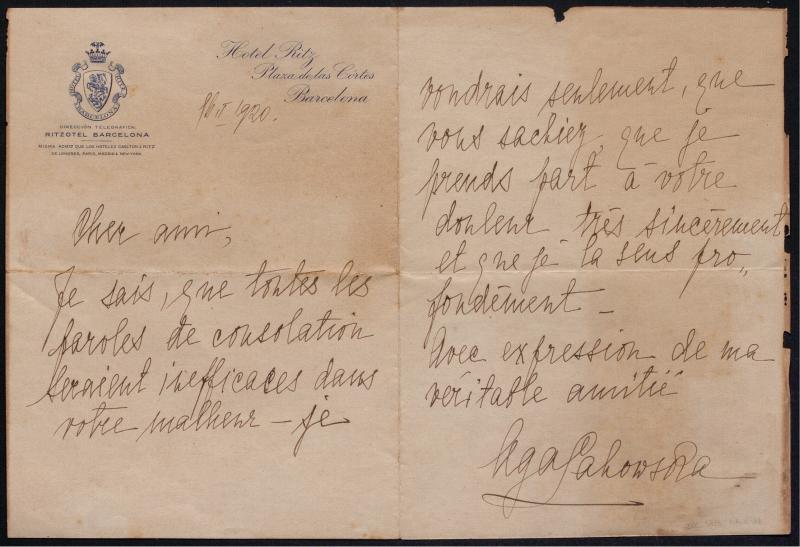 Hotel Ritz
Plaza de las Córtes
Barcelona
1920.
BARCELONA
DIRECCIÓN TELEGRÁFICA:
RITZOTEL BARCELONA
MISMA ADMON QUE LOS HOTELES CARLTON & RITZ
DE LONDRES, PARIS, MADRID & NEW-YORK.
Cher ami,
Je sais, que toutes les
paroles de consolation
seraient inefficaces dans
votre malheur – je
voudrais seulement, que
vous sachiez, que je
prends part à votre
douleur très sincèrement
et que je la sens pro„
fondément –
Avec expression de ma
véritable amitié
Aga Lahowska